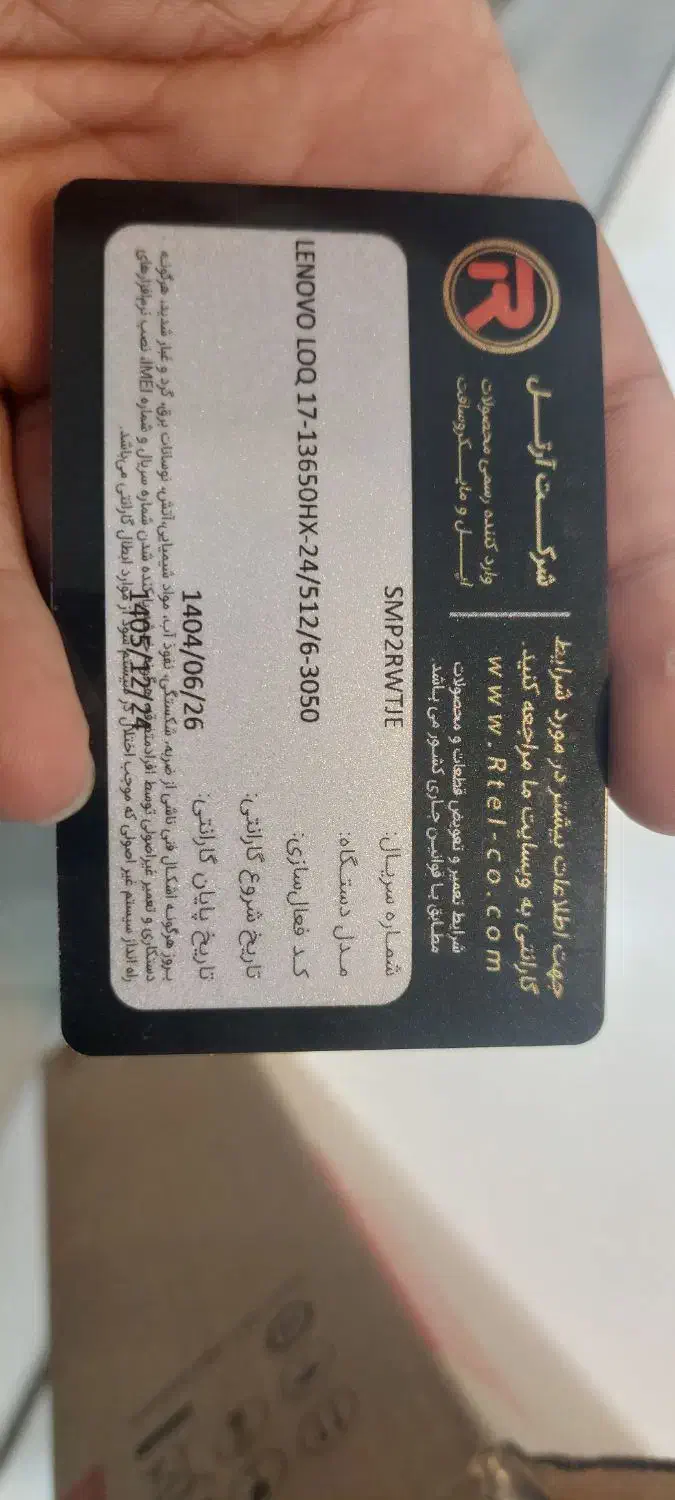 R
شرکت آرتل
وارد کننده رسمی محصولات
اپل و مایکروسافت
جهت اطلاعات بیشتر در مورد شرایط
گارانتی به وبسایت ما مراجعه کنید.
www.Rtel-co.com
شرایط تعمیر و تعویض قطعات و محصولات
مطابق با قوانین جاری کشور می باشد.
شماره سریال: SMP2RWTJE
مدل دستگاه:
کد فعال‌سازی: LENOVO LOQ 17-13650HX-24/512/6-3050
تاریخ شروع گارانتی:
تاریخ پایان گارانتی: 1404/06/26
1405/12/24
بروز هرگونه اشکال فنی ناشی از ضربه، شکستگی، نفوذ آب، مواد شیمیایی، آتش، نوسانات برق، گرد و غبار شدید، هرگونه
دستکاری و تعمیر غیراصولی توسط افراد شدن شماره سریال و شماره IMEI، نصب نرم‌افزارهای
راه انداز سیستم غیر اصولی که موجب اختلال در سیستم شود از موارد ابطال گارانتی می‌باشد.